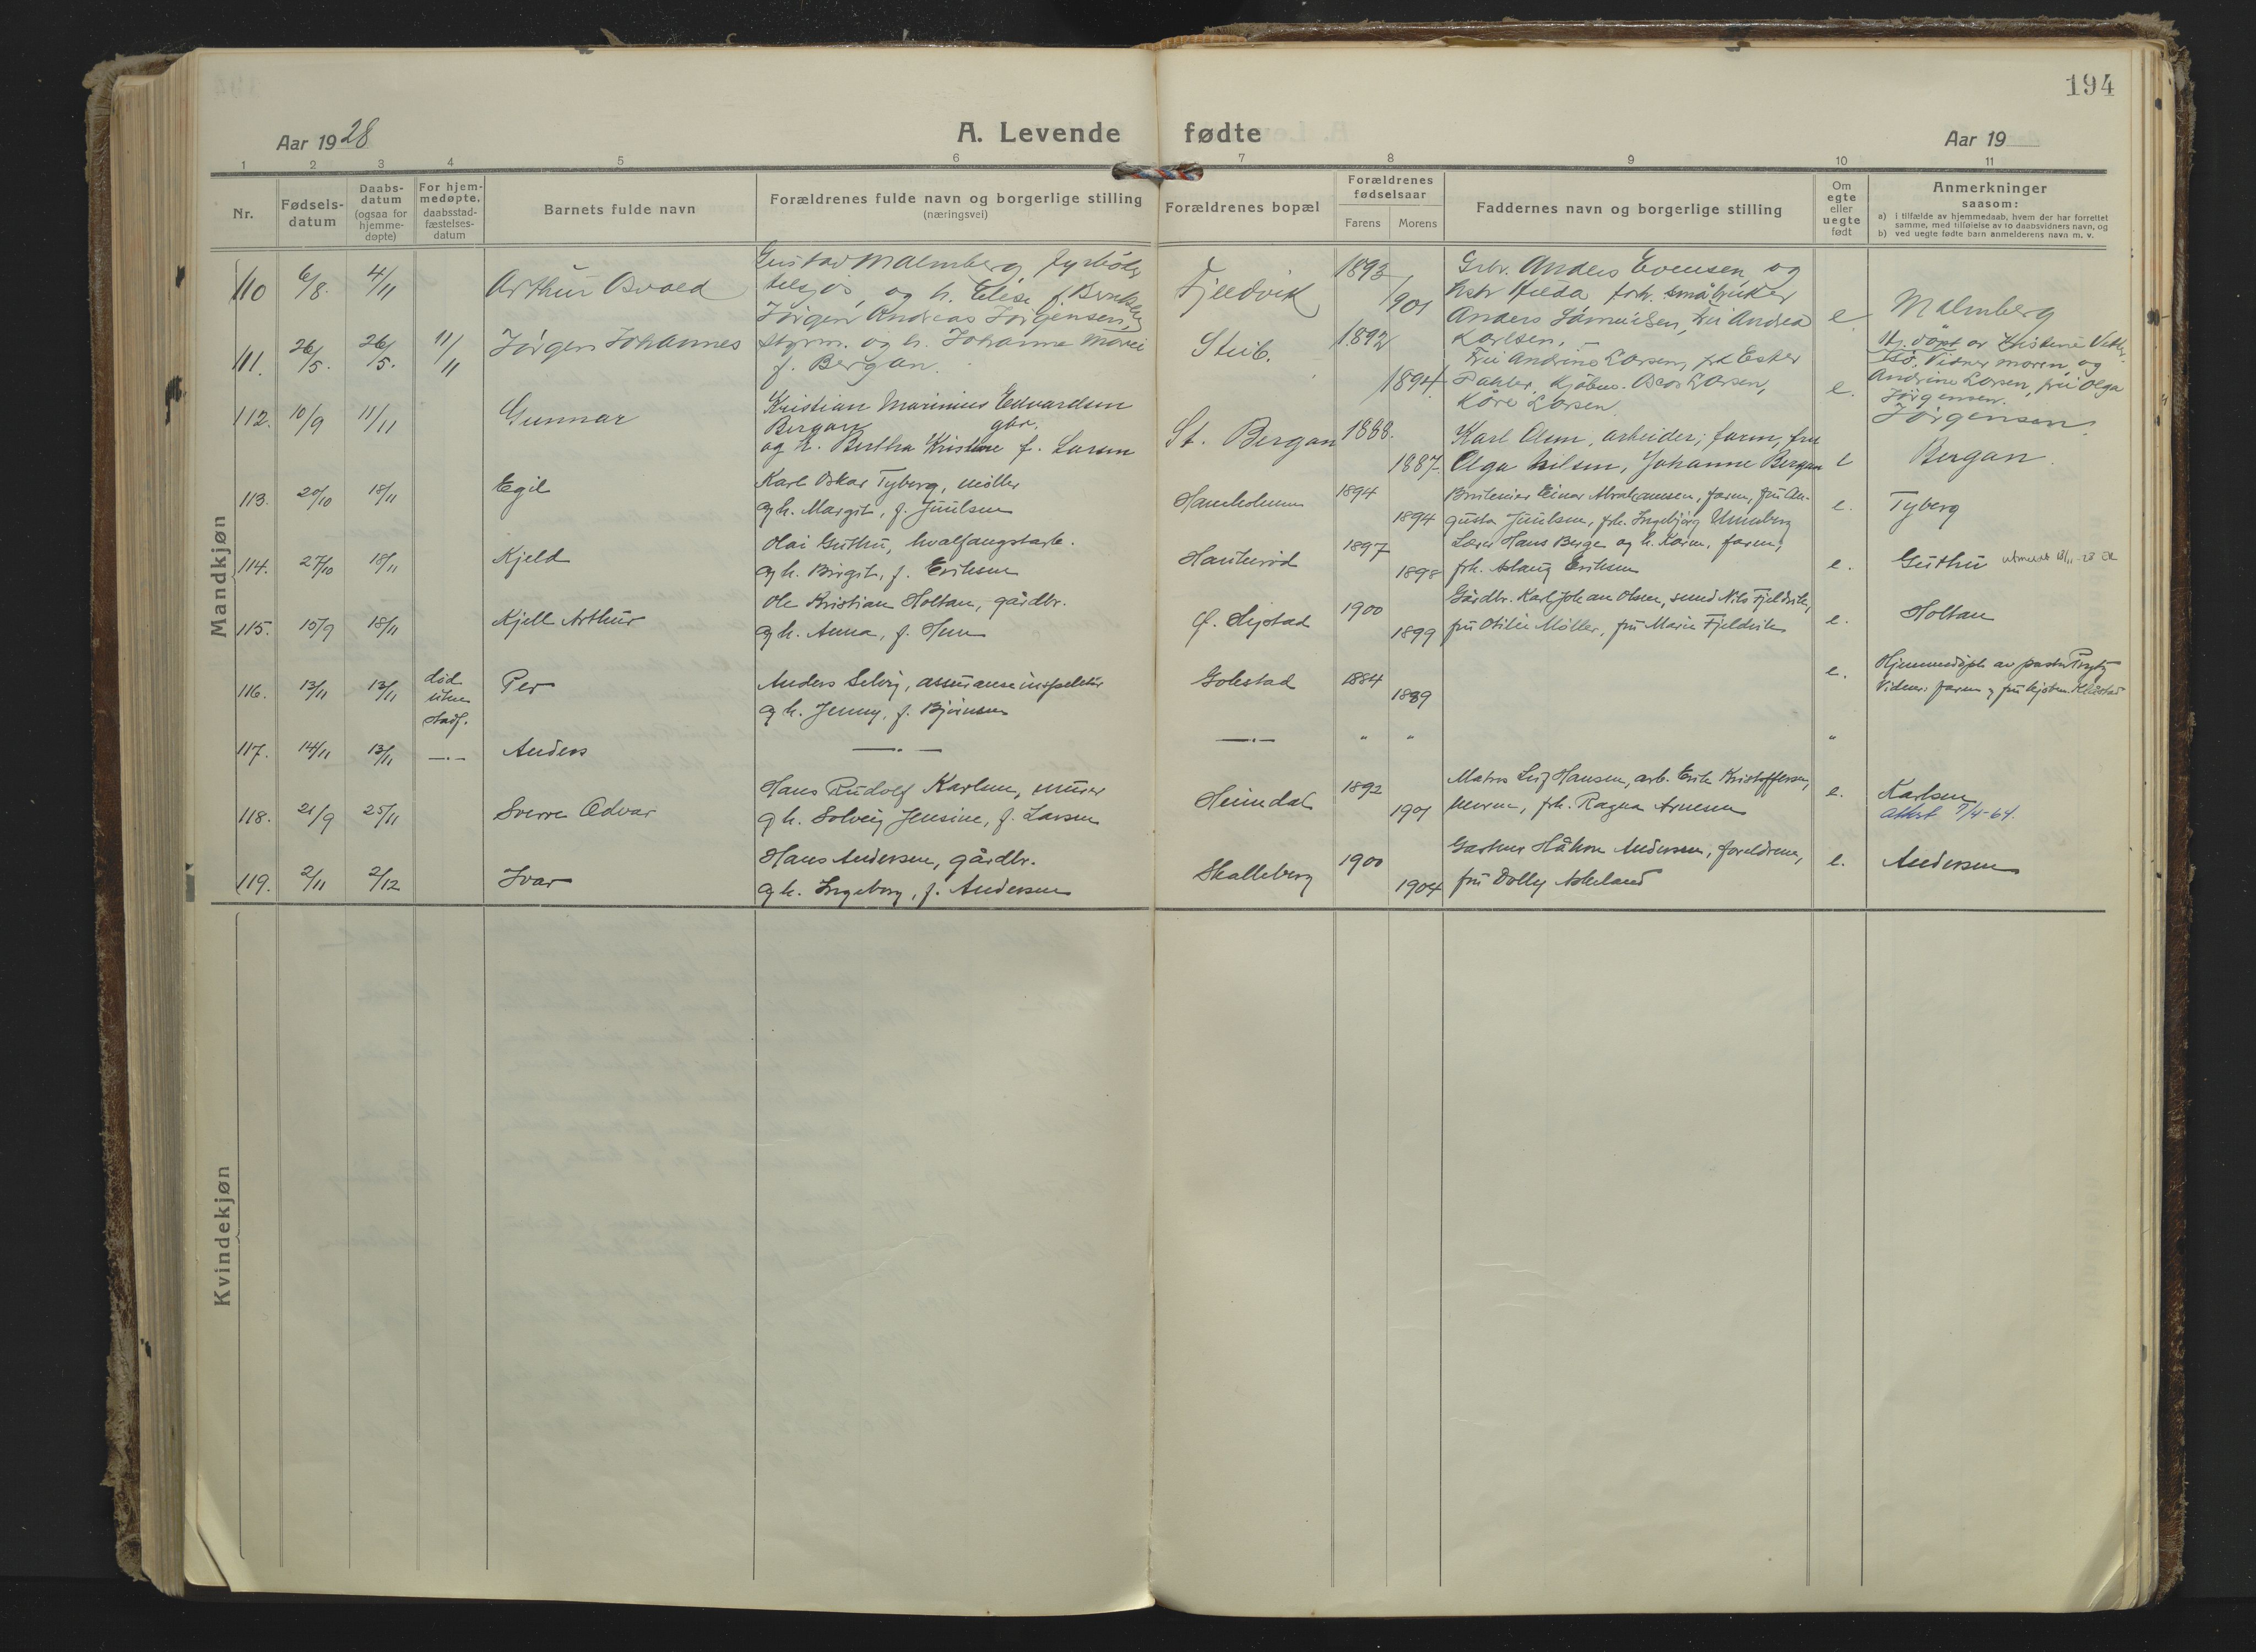 194
Aar 1928
A. Levende fødte
Aar 19
1 2 3 4 5 6 7 8 9 10 11
Nr.
Fødsels-
datum
Daabs-
datum
(ogsaa for
hjemme-
døpte)
For hjem-
medøpte.
daabsstad-
fæstelses-
datum
Barnets fulde navn
Forældrenes fulde navn og borgerlige stilling
(næringsvei)
Forældrenes bopæl
Forældrenes
fødselsaar
Farens Morens
Faddernes navn og borgerlige stilling
Om
egte
eller
uegte
født
Anmerkninger
saasom:
a) i tilfælde av hjemmedaab, hvem der har forrettet
samme, med tilføielse av to daabsvidners navn, og
b) ved uegte fødte barn anmelderens navn m. v.
Mandkjøn
110 6/8. 4/11 Arthur Osvald
Gustav Malmberg, fyrbøder
tilsjøs, og h. Elise f. Berntsen
Fjeldvik
1893
1901
Grbr. Anders Evensen og
hstr Hilda forh. småbruker
Anders Samuelsen, fru Andrea
Karlsen.
e Malmberg
111. 26/5. 26/5. 11/11 Jörgen Johannes
Jörgen Andreas Jörgensen,
styrm. og h. Johanne Marie
f. Bergan.
Stub.
1892
1894.
Fru Andrine Larsen, frk Ester
Kjøbm. Larsen,
Kåre Larsen.
e.
Hj. döpt av Kristine
Vidner moren og
Andrine Larsen, fru Olga
Jörgensen.
Jörgensen.
112. 10/9 11/11 Gunnar
Kristian Marinius Edvardsen
Bergan gbr.
og h. Bertha Kristine f. Larsen
St. Bergan
1888.
1887.
Karl Olsen, arbeider, faren, fru
Olga Nilsen, Johanne Bergan
e Bergan.
113. 20/10 18/11 Egil
Karl Oskar Tyberg, møller
og h. Margit, f. Juulsen
Haneholmen
1894
1894
Einar Abrahamsen, faren, fru Au-
gusta Juulsen, frk. Ingebjørg Unneberg
e. Tyberg
114. 27/10 18/11 Kjeld
Olai Guthu, hvalfangstarb.
og h. Birgit, f. Eriksen
Haukerød
1897
1898
Lærer Hans Berge og h. Karen, faren,
frk. Aslaug Eriksen
e. Guthu
115. 15/9 18/11 Kjell Arthur
Ole Kristian Holtan, gårdbr.
og h. Anna, f. Hem
Ø. Hystad
1900
1899
Gårdbr. Karl Johan Olsen, smed Nils Fjeldvik,
fru Otilie Møller, fru Marie Fjeldvik
e. Holtan
116. 13/11 13/11 død
uten
stadf. Per
Anders Selvig, assuranseinspektør
og h. Jenny, f. Bjørnsen
Gokstad
1884
1889
e. Hjemmedøpt av pastor
Vidner: faren og fru
117. 14/11 13/11 —.— Anders —.— —.— " " "
118. 21/9 25/11 Sverre Odvar
Hans Rudolf Karlsen, murer
og h. Solveig Jensine, f. Larsen
Heimdal
1892
1901
Matros Leif Hansen, arb. Erik Kristoffersen,
moren, frk. Ragna Arnesen
e. Karlsen
attest 7/4-64.
119. 2/11 2/12 Ivar
Hans Andersen, gårdbr.
og h. Ingeborg, f. Andersen
Skalleberg
1900
1904
Gartner Håkon Andersen, foreldrene,
fru Dolly Askeland
e. Andersen
Kvindekjøn